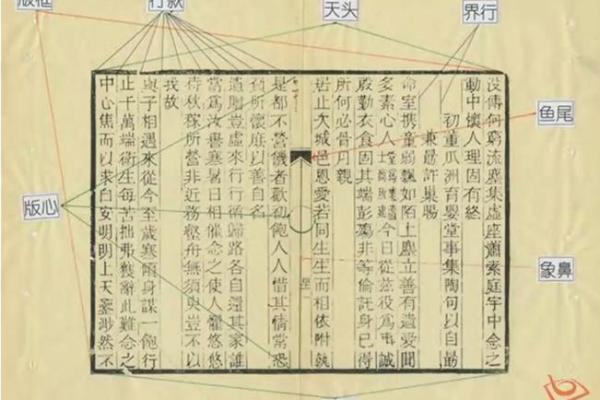 版框
行款
天头
界行
鱼尾
版心
象鼻
没傳何窮流塵集虚座蕭索庭宇中念之
動中懷人理固有終
初董瓜洲育嬰堂事集陶句以自
命室携童弱飄如陌上塵立善有遺愛聞
多素心人
今日從茲役爲事誠
殷勤衣食固其端彭殤非等倫託身已得
所何必骨月親
居止次城邑恩愛若同生生而相依附孰
是都不營饑者歡初飽人人惜其情常恐
負所懷庶以善自名
遺贈豈虚來行行循歸路各自還其家誰
當爲汝譽寒暑日相催念之使人懼悠悠
待秋稼所營非近務壑舟無須臾豈不以
我故
與子相遇來從今至歲寒爾身謀一飽行
止千萬端衛生每苦拙弗獲辭此難念之
中心焦而以求自安明明上天鑒渺然不